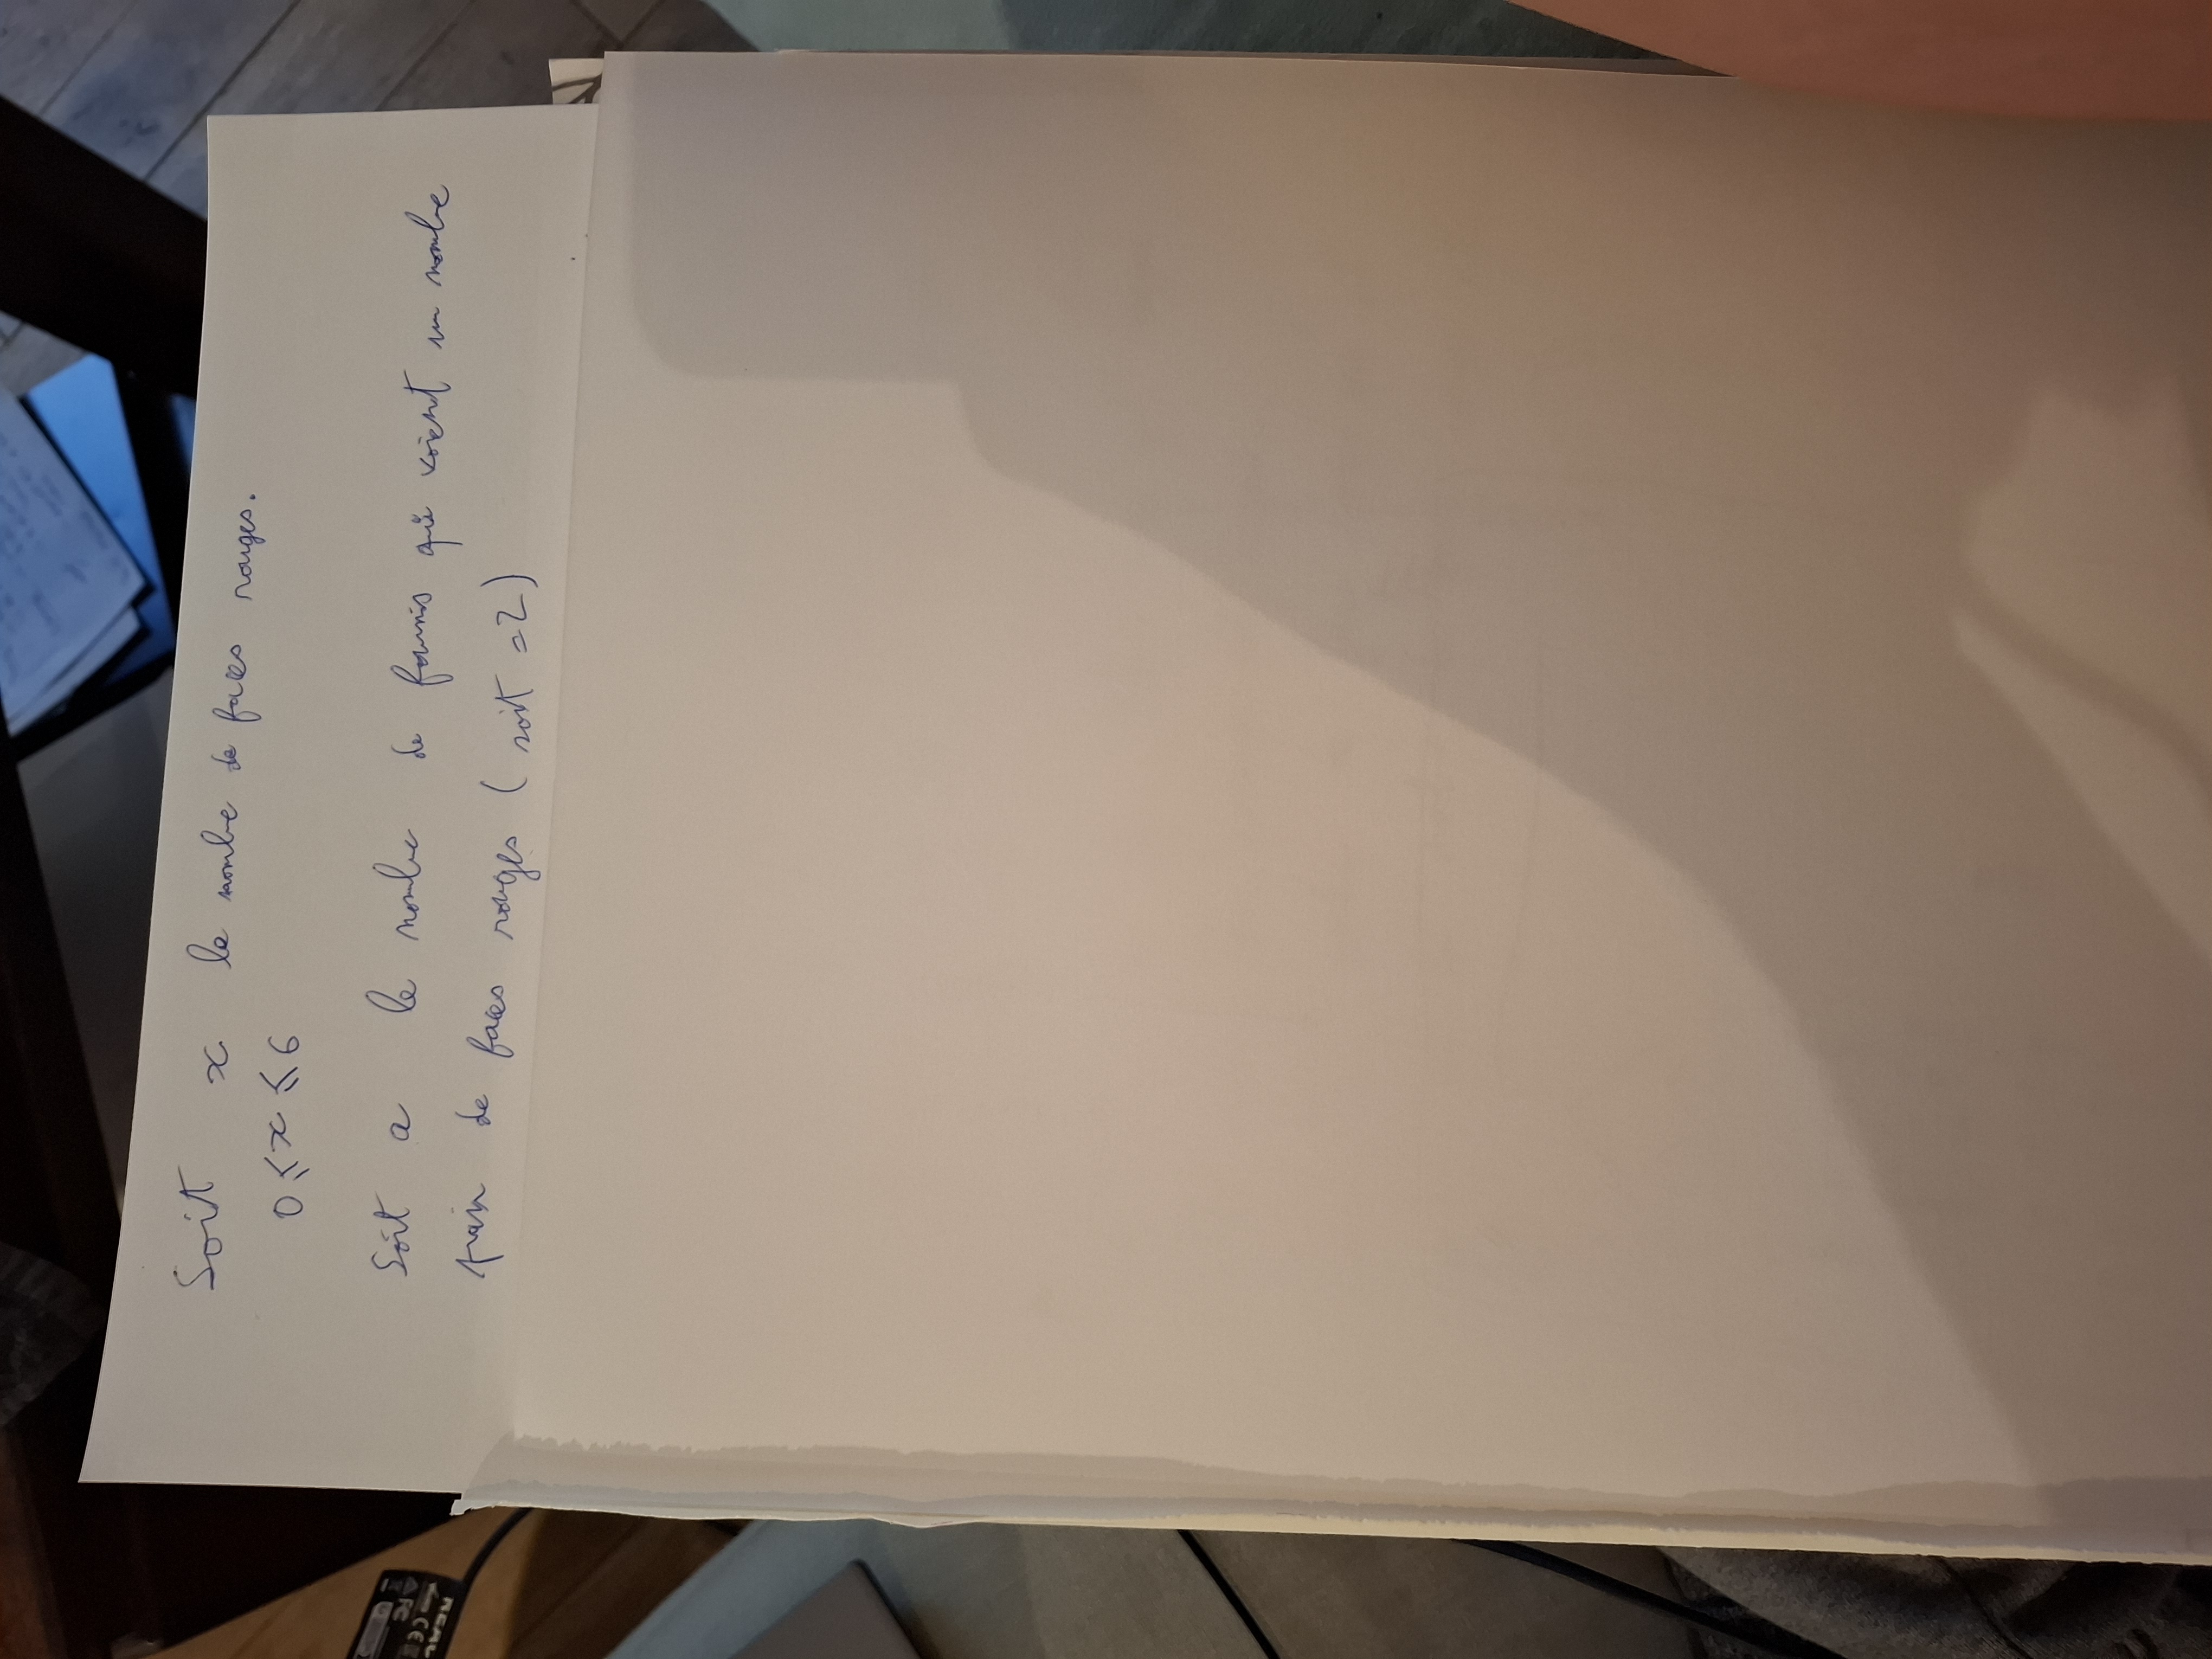 Soit x le nombre de faces rouges.
0 ⩽ x ⩽ 6
Soit a le nombre de fourmis qui voient un nombre
pair de faces rouges ( soit =2)
REAL
CE
FC